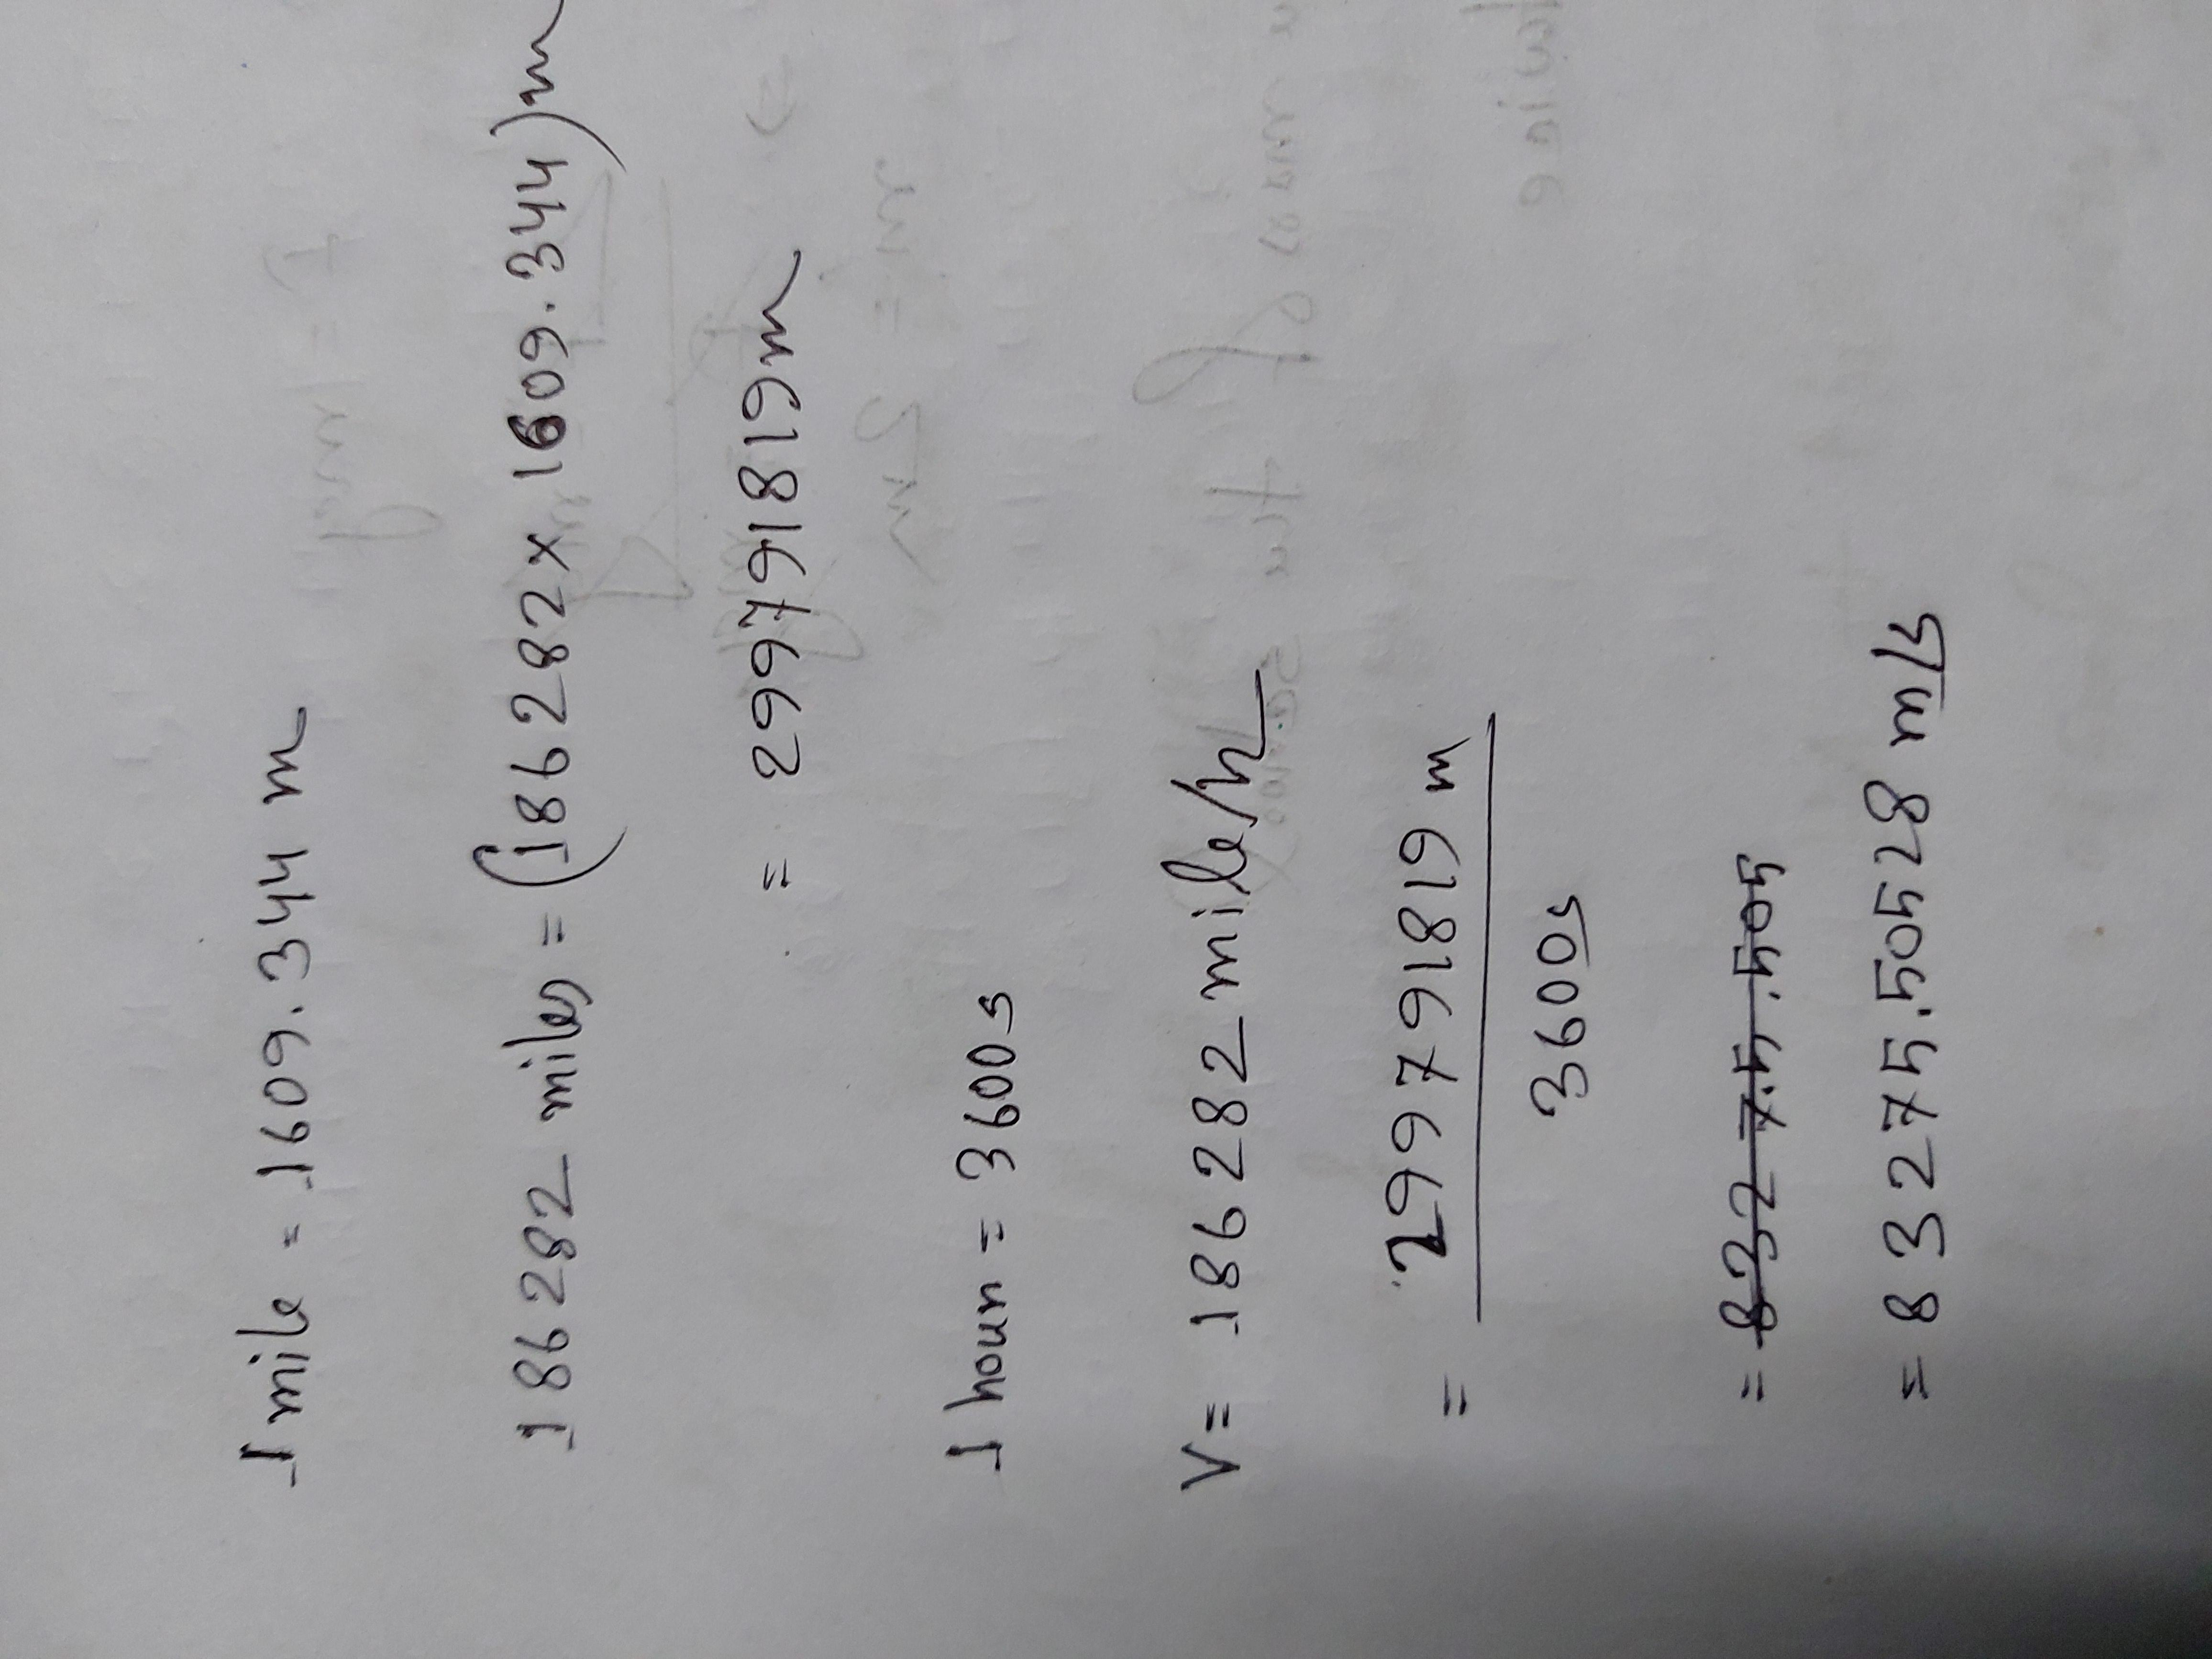 1 mile = 1609.344 m
186282 miles = (186282 × 1609.344)m
= 299791819m
1 hour = 3600s
V = 186282 mile/h
= 299791819 m
3600s
= 83275.505
= 83275.50528 m/s